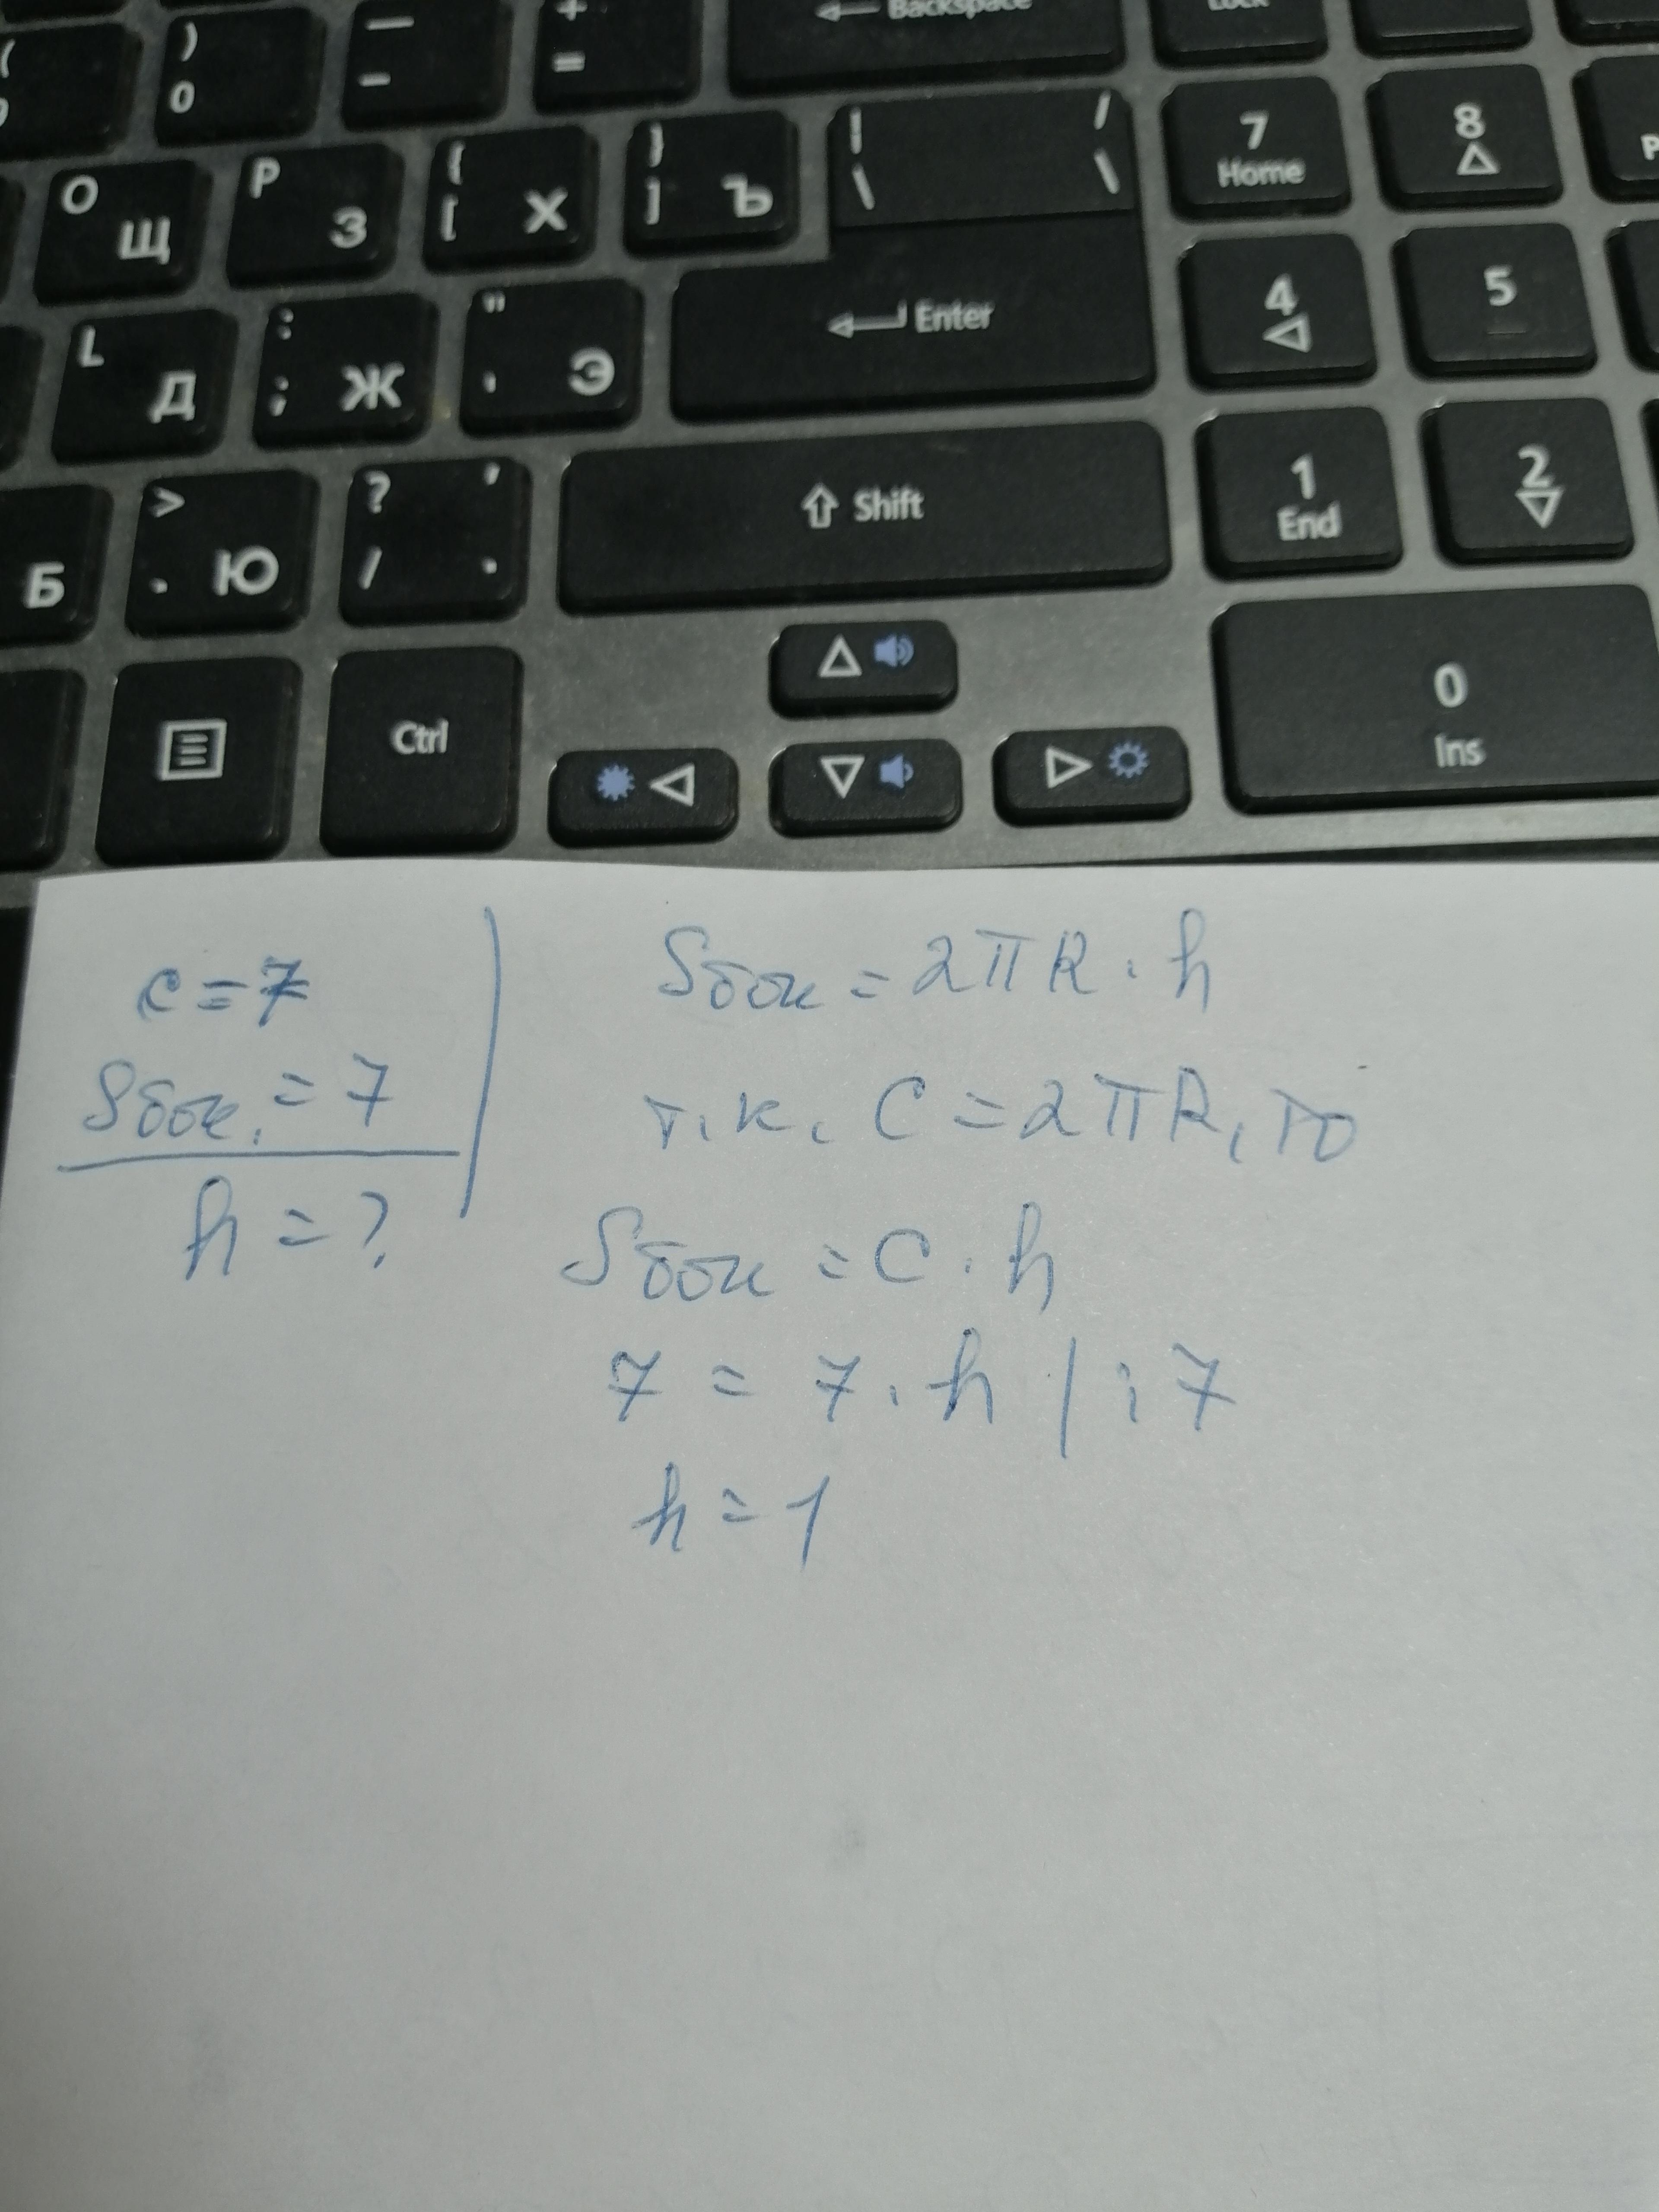 ← Backspace
Lock
( ) 0
— –
+ =
O Щ
P З
{ [ Х
} ] Ъ
| \
/ \
7 Home
8
P
L Д
: ; Ж
" ' Э
Enter
4
5
Б
> . Ю
? / , .
Shift
1 End
2
Ctrl
0 Ins
c = 7
Sбок. = 7
h = ?
Sбок = 2πR · h
т.к. C = 2πR, то
Sбок = C · h
7 = 7 · h | : 7
h = 1